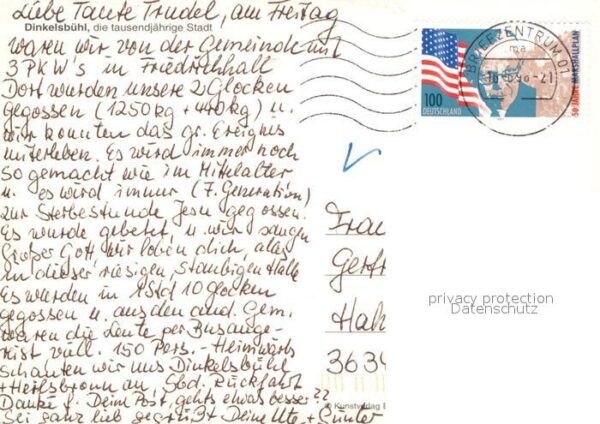 Liebe Tante Trudel, am Freitag
Dinkelsbühl, die tausendjährige Stadt
waren wir von der Gemeinde mit
3 PKW's in Friedrichhall
Dort wurden unsere 2 Glocken
gegossen (1250 kg + 440 kg) u.
wir konnten das gr. Ereignis
miterleben. Es wird immer noch
so gemacht wie im Mittelalter
u. es wird immer (7. Generation)
zur Sterbestunde Jesu gegossen.
Es wurde gebetet, u. wir sangen
Großer Gott, wir loben dich, alles
in dieser riesigen, staubigen Halle
Es wurden in 1 Std 10 Glocken
gegossen u. aus den and. Gem.
waren die Leute per Bus ange-
reist vull. 150 Pers. - Heimwärts
schauten wir uns Dinkelsbühl
+ Heilsbronn an, Sbd. Rückfahrt
Danke f. Dein Post, gehts etwas besser??
Sei ganz lieb gegrüßt Deine Ute + Günter
BRIEFZENTRUM 01
ma
100
DEUTSCHLAND
50 JAHRE MARSHALLPLAN
Frau
Gerfr
Hah
3634
privacy protection
Datenschutz
© Kunstverlag E